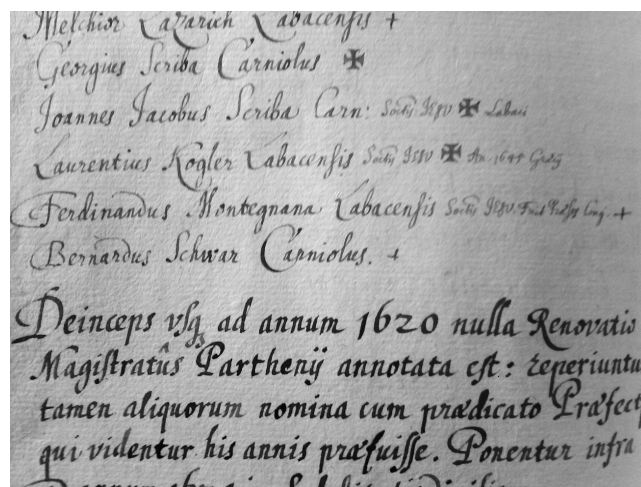 Melchior Lazarich Labacensis +
Georgius Scriba Carniolus ✠
Joannes Jacobus Scriba Carn: Soctis JESV ✠ Labaci
Laurentius Kogler Labacensis Soctis JESV ✠ An. 1645
Ferdinandus Montegnana Labacensis Soctis JESV. +
Bernardus Schwar Carniolus. +
Deinceps vsq ad annum 1620 nulla Renovatio
Magistratûs Parthenij annotata est: reperiuntu
tamen aliquorum nomina cum prædicato Præfect
qui videntur his annis præfuisse. Ponentur infra